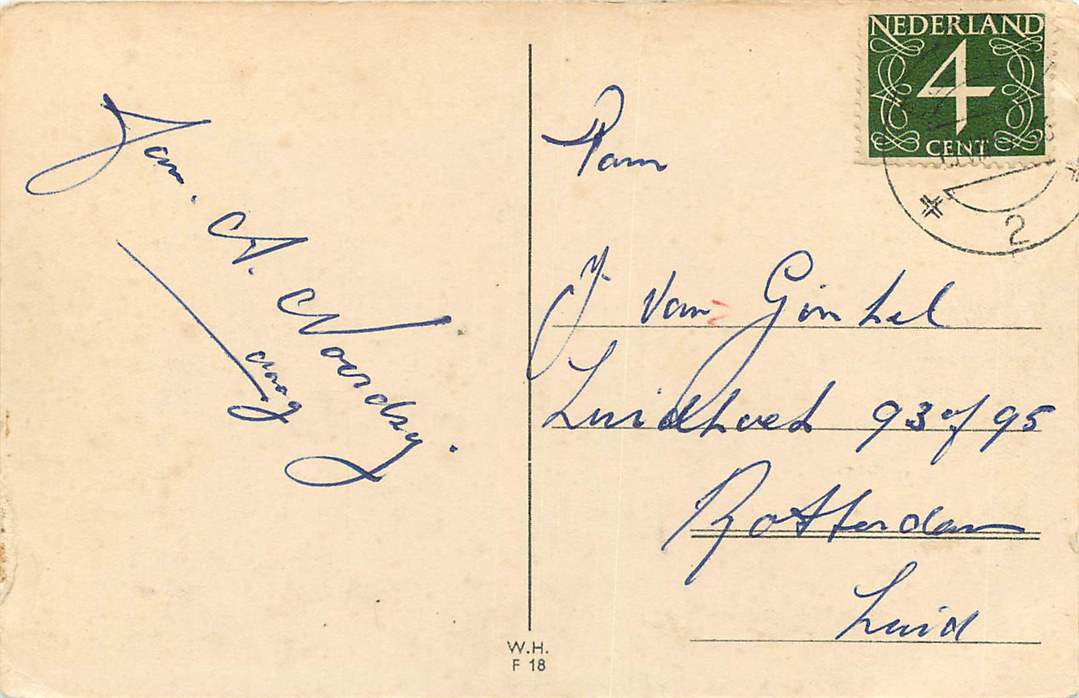 Fam. A. Noordzy.
Fam
J. van Ginkel
Zuidhoek 93 of 95
Rotterdam
Zuid
NEDERLAND
4
CENT
2
W.H.
F 18